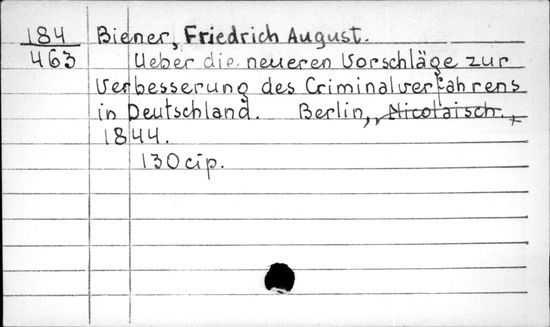 184 Biener, Friedrich August.
463 Ueber die neueren Vorschläge zur
Verbesserung des Criminalverfahrens
in Deutschland. Berlin, Nicolaisch.
1844.
130cip.